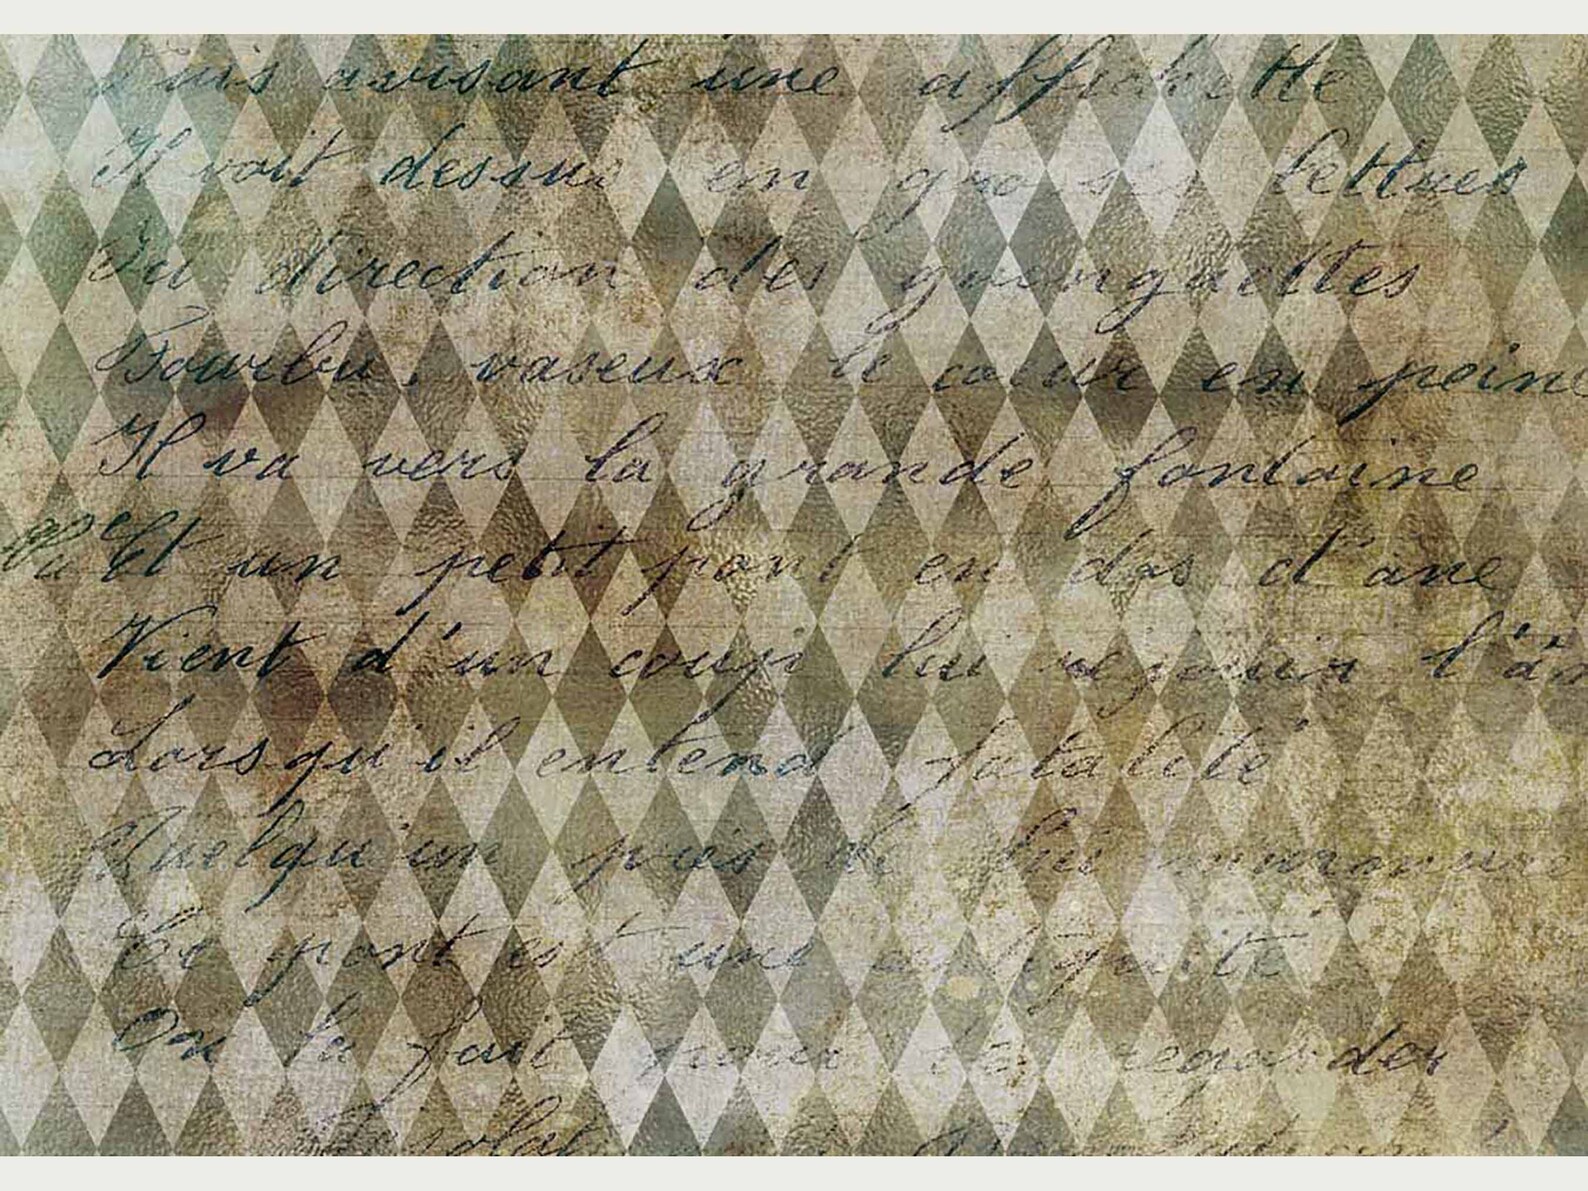 Puis avisant une affichette
Il voit dessus en grosses lettres
La direction des guinguettes
Fourbu, vaseux le cœur en peine
Il va vers la grande fontaine
Et un petit pont en dos d'âne
Vient d'un coup lui réjouir l'â
Lorsqu'il entend fatalité
Quelqu'un près de lui murmure
Ce pont est une antiquité
On la fait pour regarder